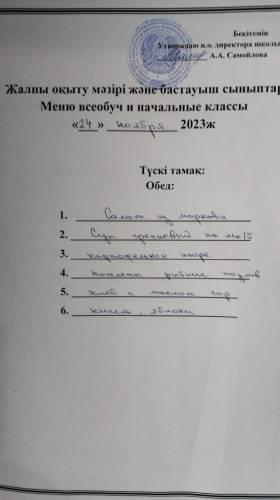 Бекітемін
Утверждаю и.о. директора школы
А.А. Самойлова
Жалпы оқыту мәзірі және бастауыш сыныптар
Меню всеобуч и начальные классы
«24» ноября 2023ж
Түскі тамақ:
Обед:
1. Салат из моркови
2. Суп гречневый на мк/б
3. картофельное пюре
4. котлеты рыбные подлив
5. хлеб с маслом сыр
6. кисель, яблоки